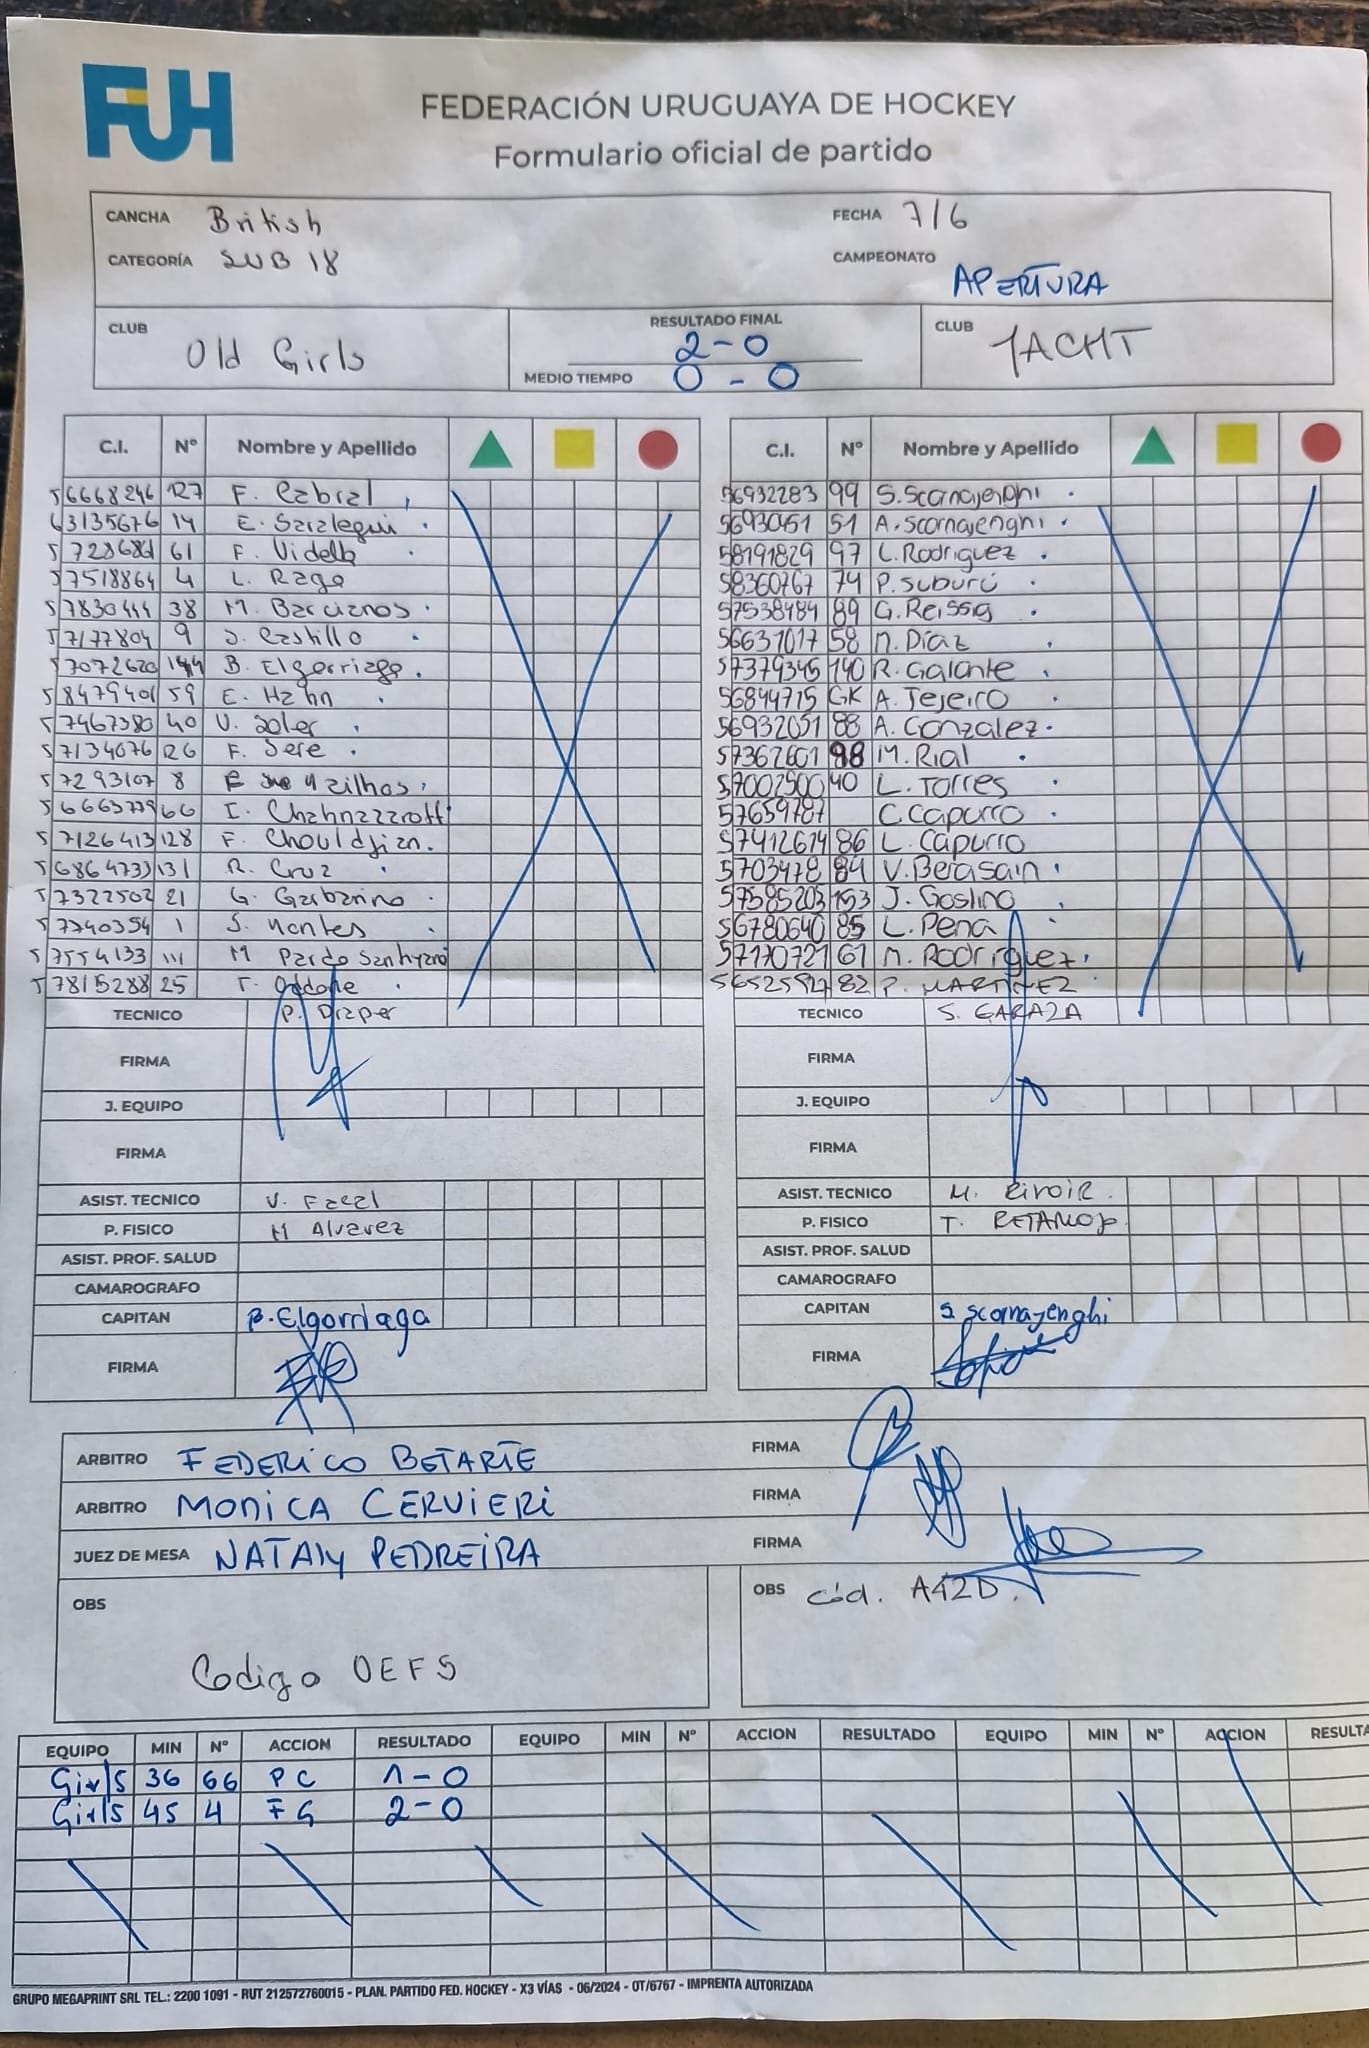 FUH
FEDERACIÓN URUGUAYA DE HOCKEY
Formulario oficial de partido
CANCHA British FECHA 7/6
CATEGORÍA SUB 18 CAMPEONATO APERTURA
CLUB Old Girls RESULTADO FINAL 2-0 CLUB YACHT
MEDIO TIEMPO 0-0
C.I. Nº Nombre y Apellido C.I. Nº Nombre y Apellido
56668246 127 F. Cabral 56932283 99 S. Scornajenghi
63135676 14 E. Saralegui 51 A. Scornajenghi
61 F. Videlb 58191829 97 L. Rodriguez
57518864 4 L. Raga 58360767 74 P. Suburú
38 M. Barcianos 57538484 89 G. Reissig
57177804 9 J. Castillo 56631017 58 M. Díaz
57072620 144 B. Elgorriaga 57379345 140 R. Galante
58479401 59 E. Hahn 56844715 GK A. Tejeiro
57467380 40 V. Soler 56932051 88 A. Gonzalez
57134076 126 F. Sere 57362601 98 M. Rial
57293107 8 57002500 40 L. Torres
66 I. 57659787 C. Capurro
57126413 128 F. Chouldjian 57412614 86 L. Capurro
56864733 131 R. Cruz 5703478 84 V. Berasain
57322502 21 G. Garbarino 57585203 153 J. Goslino
57740354 1 S. Montes 56780640 85 L. Pena
57554133 111 M Pardo 57170721 61 M. Rodriguez
57815288 25 T. Oddone 82 P. MARTINEZ
TECNICO P. Draper TECNICO S. GARAZA
FIRMA FIRMA
J. EQUIPO J. EQUIPO
FIRMA FIRMA
ASIST. TECNICO V. ASIST. TECNICO M. Rivoir.
P. FISICO M Alvarez P. FISICO T. RETAMOSO
ASIST. PROF. SALUD ASIST. PROF. SALUD
CAMAROGRAFO CAMAROGRAFO
CAPITAN B. Elgorriaga CAPITAN S Scornajenghi
FIRMA FIRMA
ARBITRO FEDERICO BETARTE FIRMA
ARBITRO MONICA CERVIERI FIRMA
JUEZ DE MESA NATALY PEDREIRA FIRMA
OBS OBS Cód. A42D.
Codigo OEFS
EQUIPO MIN Nº ACCION RESULTADO EQUIPO MIN Nº ACCION RESULTADO EQUIPO MIN Nº ACCION RESULTA
Girls 36 66 PC 1-0
Girls 45 4 FG 2-0
GRUPO MEGAPRINT SRL TEL.: 2200 1091 - RUT 212572760015 - PLAN. PARTIDO FED. HOCKEY - X3 VÍAS - 06/2024 - OT/6767 - IMPRENTA AUTORIZADA